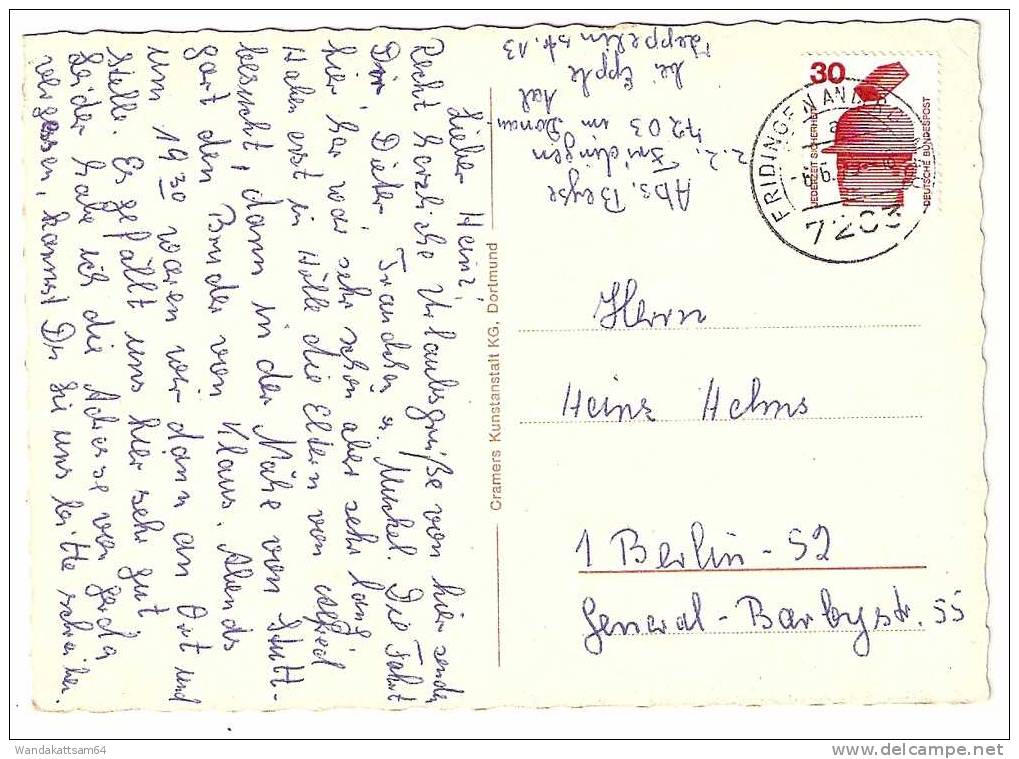 Lieber Heinz,
Recht herzliche Urlaubsgrüße von hier sendet
Dir, Dieter, u. Merkel. Die Fahrt
hier her, war sehr schön aber sehr lang
Haben erst in Hülle die Eltern von Alfred
besucht, dann in der Nähe von Stutt-
gart den Bruder von Klaus. Abends
um 19 30 waren wir dann an Ort und
Stelle. Es gefällt uns hier sehr gut
Leider habe ich die Adresse von Gerda
vergessen, kannst Du sie uns bitte schreiben.
Abs. Beyse
z.Z. Fridingen
7203 im Donau
tal
bei Epple
Zeppelin str. 13
Cramers Kunstanstalt KG, Dortmund
30
JEDERZEIT SICHERHEIT
DEUTSCHE BUNDESPOST
FRIDINGEN AN DER DONAU
a
7203
Herrn
Heinz Helms
1 Berlin - 52
General - Barbystr. 55
Wandakattsam64
delcampe.net